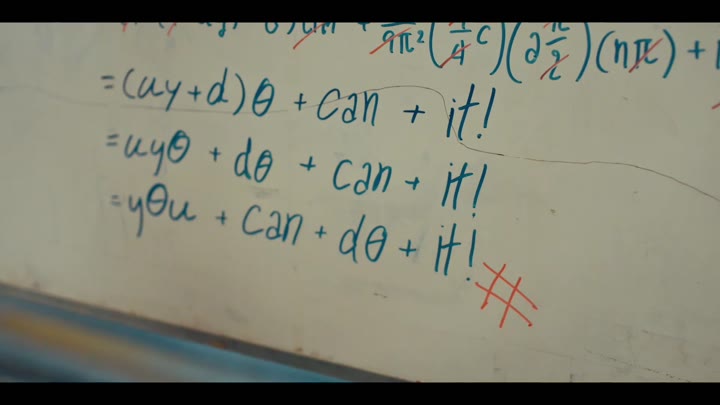 π² (1/4 c)(∂π/2)(nπ) +
=(uy+d)θ + can + it!
=uyθ + dθ + can + it!
=yθu + can + dθ + it!
#